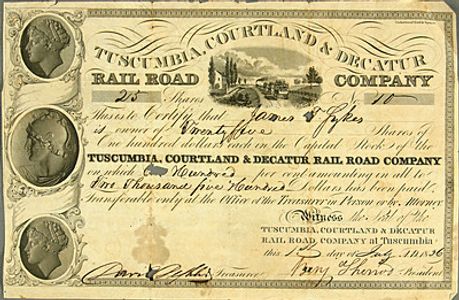 TUSCUMBIA, COURTLAND & DECATUR
RAIL ROAD COMPANY
25 Shares No. 10
This is to Certify that James T Sykes
is owner of Twenty five Shares of
One hundred dollars each in the Capital Stock of the
TUSCUMBIA, COURTLAND & DECATUR RAIL ROAD COMPANY
on which One Hundred per cent amounting in all to
Two Thousand five Hundred Dollars has been paid.
Transferable only at the Office of the Treasurer in Person or by Attorney
Witness the Seal of the
TUSCUMBIA, COURTLAND & DECATUR
RAIL ROAD COMPANY at Tuscumbia
this 1st day of July 1836
David Treasurer Benj Sherrod President